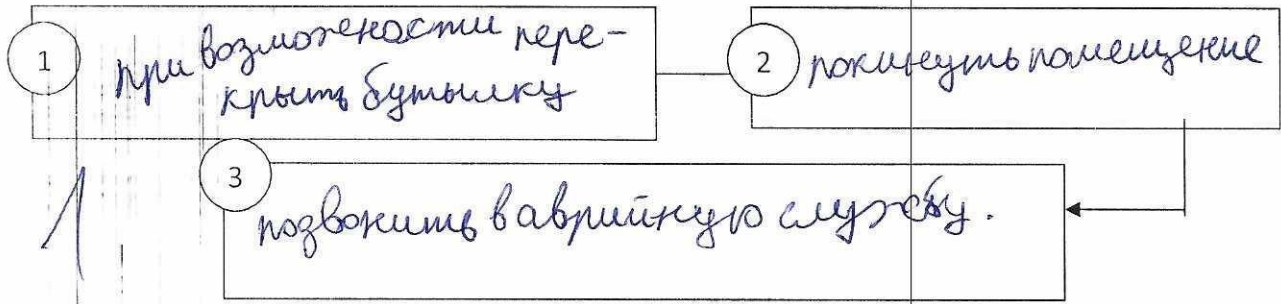 1
при возможности пере-
крыть бутылку
2
покинуть помещение
3
позвонить в аврийную службу.
1